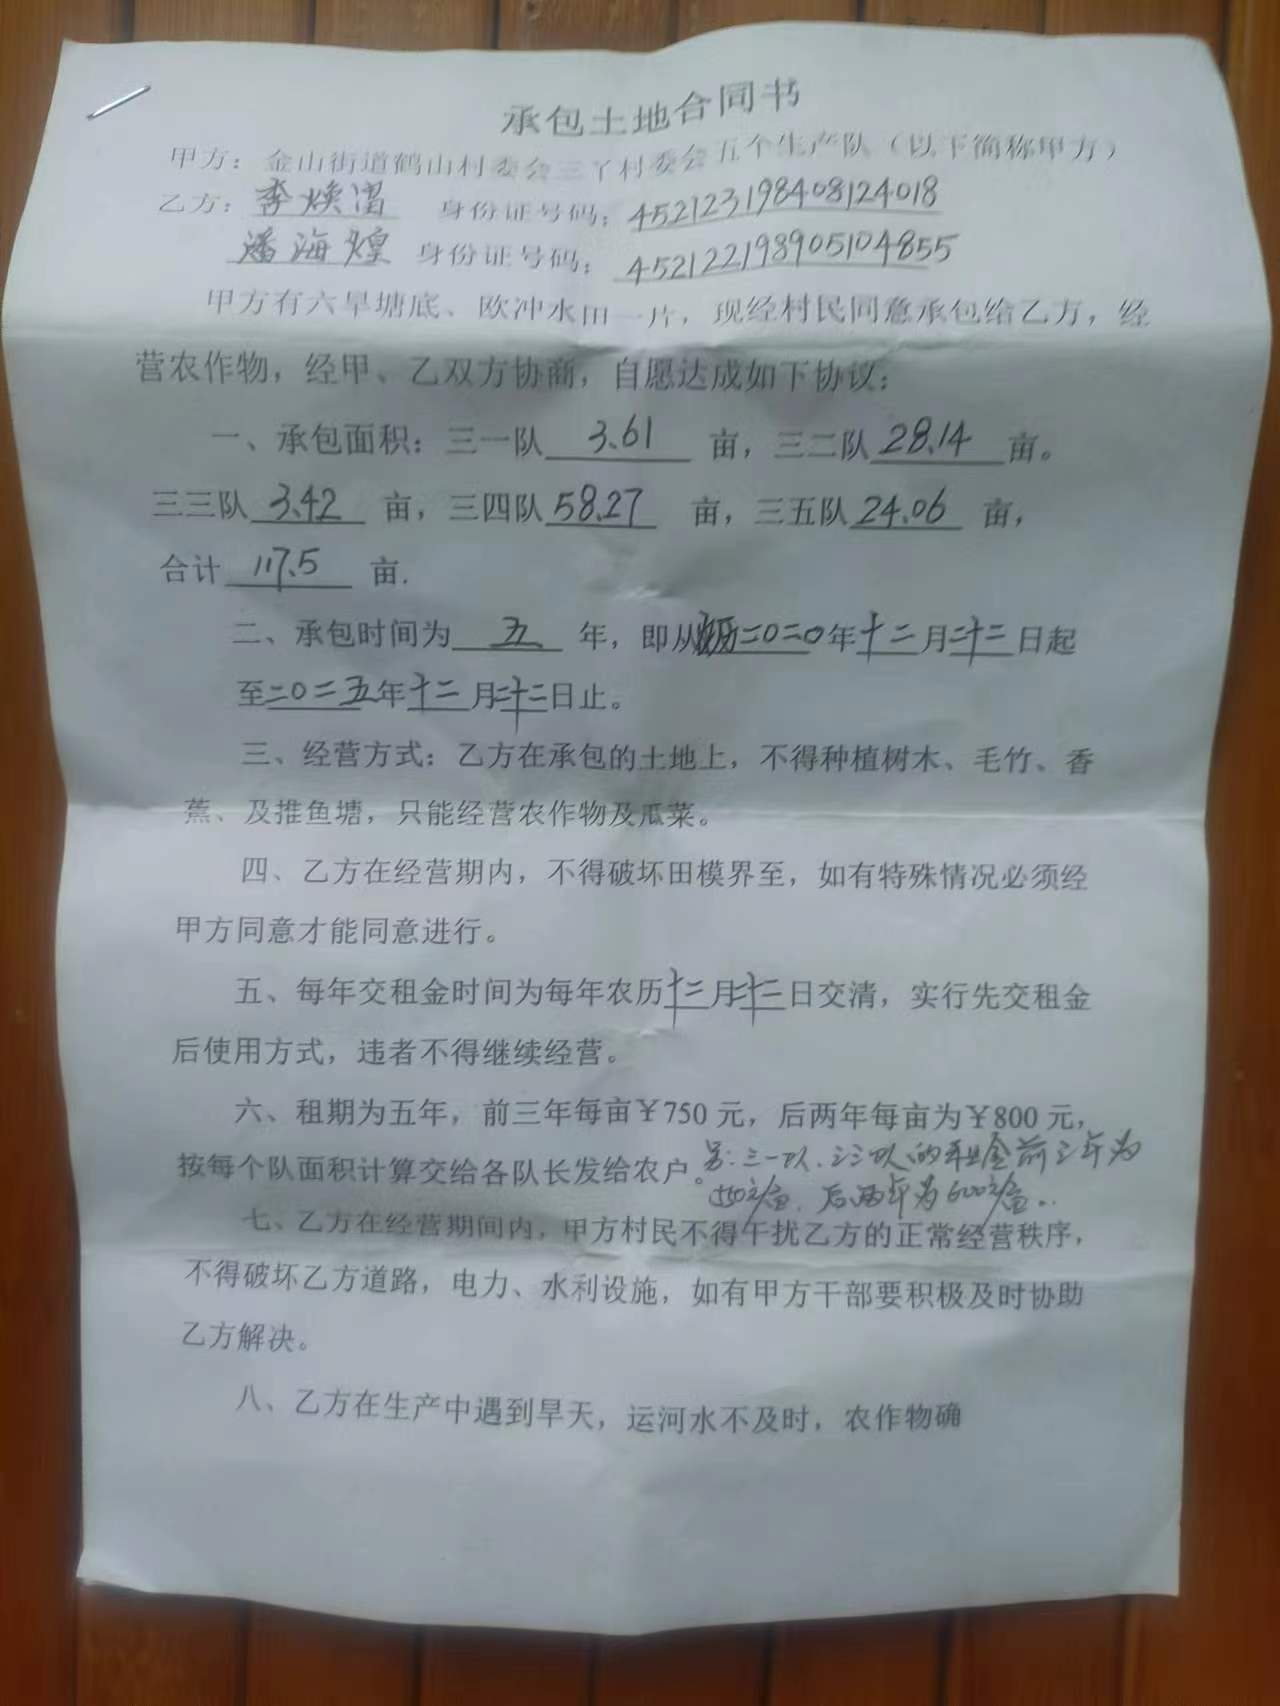 承包土地合同书
甲方：金山街道鹤山村委会三丫村委会五个生产队（以下简称甲方）
乙方：李焕溜 身份证号码：452123198408124018
潘海煌 身份证号码：452122198905104855
甲方有六旱塘底、欧冲水田一片，现经村民同意承包给乙方，经
营农作物，经甲、乙双方协商，自愿达成如下协议：
一、承包面积：三一队 3.61 亩，三二队 28.14 亩。
三三队 3.42 亩，三四队 58.27 亩，三五队 24.06 亩，
合计 117.5 亩.
二、承包时间为 五 年，即从农历二〇二〇年十二月二十二日起
至二〇二五年十二月二十二日止。
三、经营方式：乙方在承包的土地上，不得种植树木、毛竹、香
蕉、及推鱼塘，只能经营农作物及瓜菜。
四、乙方在经营期内，不得破坏田模界至，如有特殊情况必须经
甲方同意才能同意进行。
五、每年交租金时间为每年农历十二月二十二日交清，实行先交租金
后使用方式，违者不得继续经营。
六、租期为五年，前三年每亩￥750元，后两年每亩为￥800元，
按每个队面积计算交给各队长发给农户。另：三一队、三三队的租金前三年为
550元/亩，后两年为600元/亩。
七、乙方在经营期间内，甲方村民不得干扰乙方的正常经营秩序，
不得破坏乙方道路，电力、水利设施，如有甲方干部要积极及时协助
乙方解决。
八、乙方在生产中遇到旱天，运河水不及时，农作物确